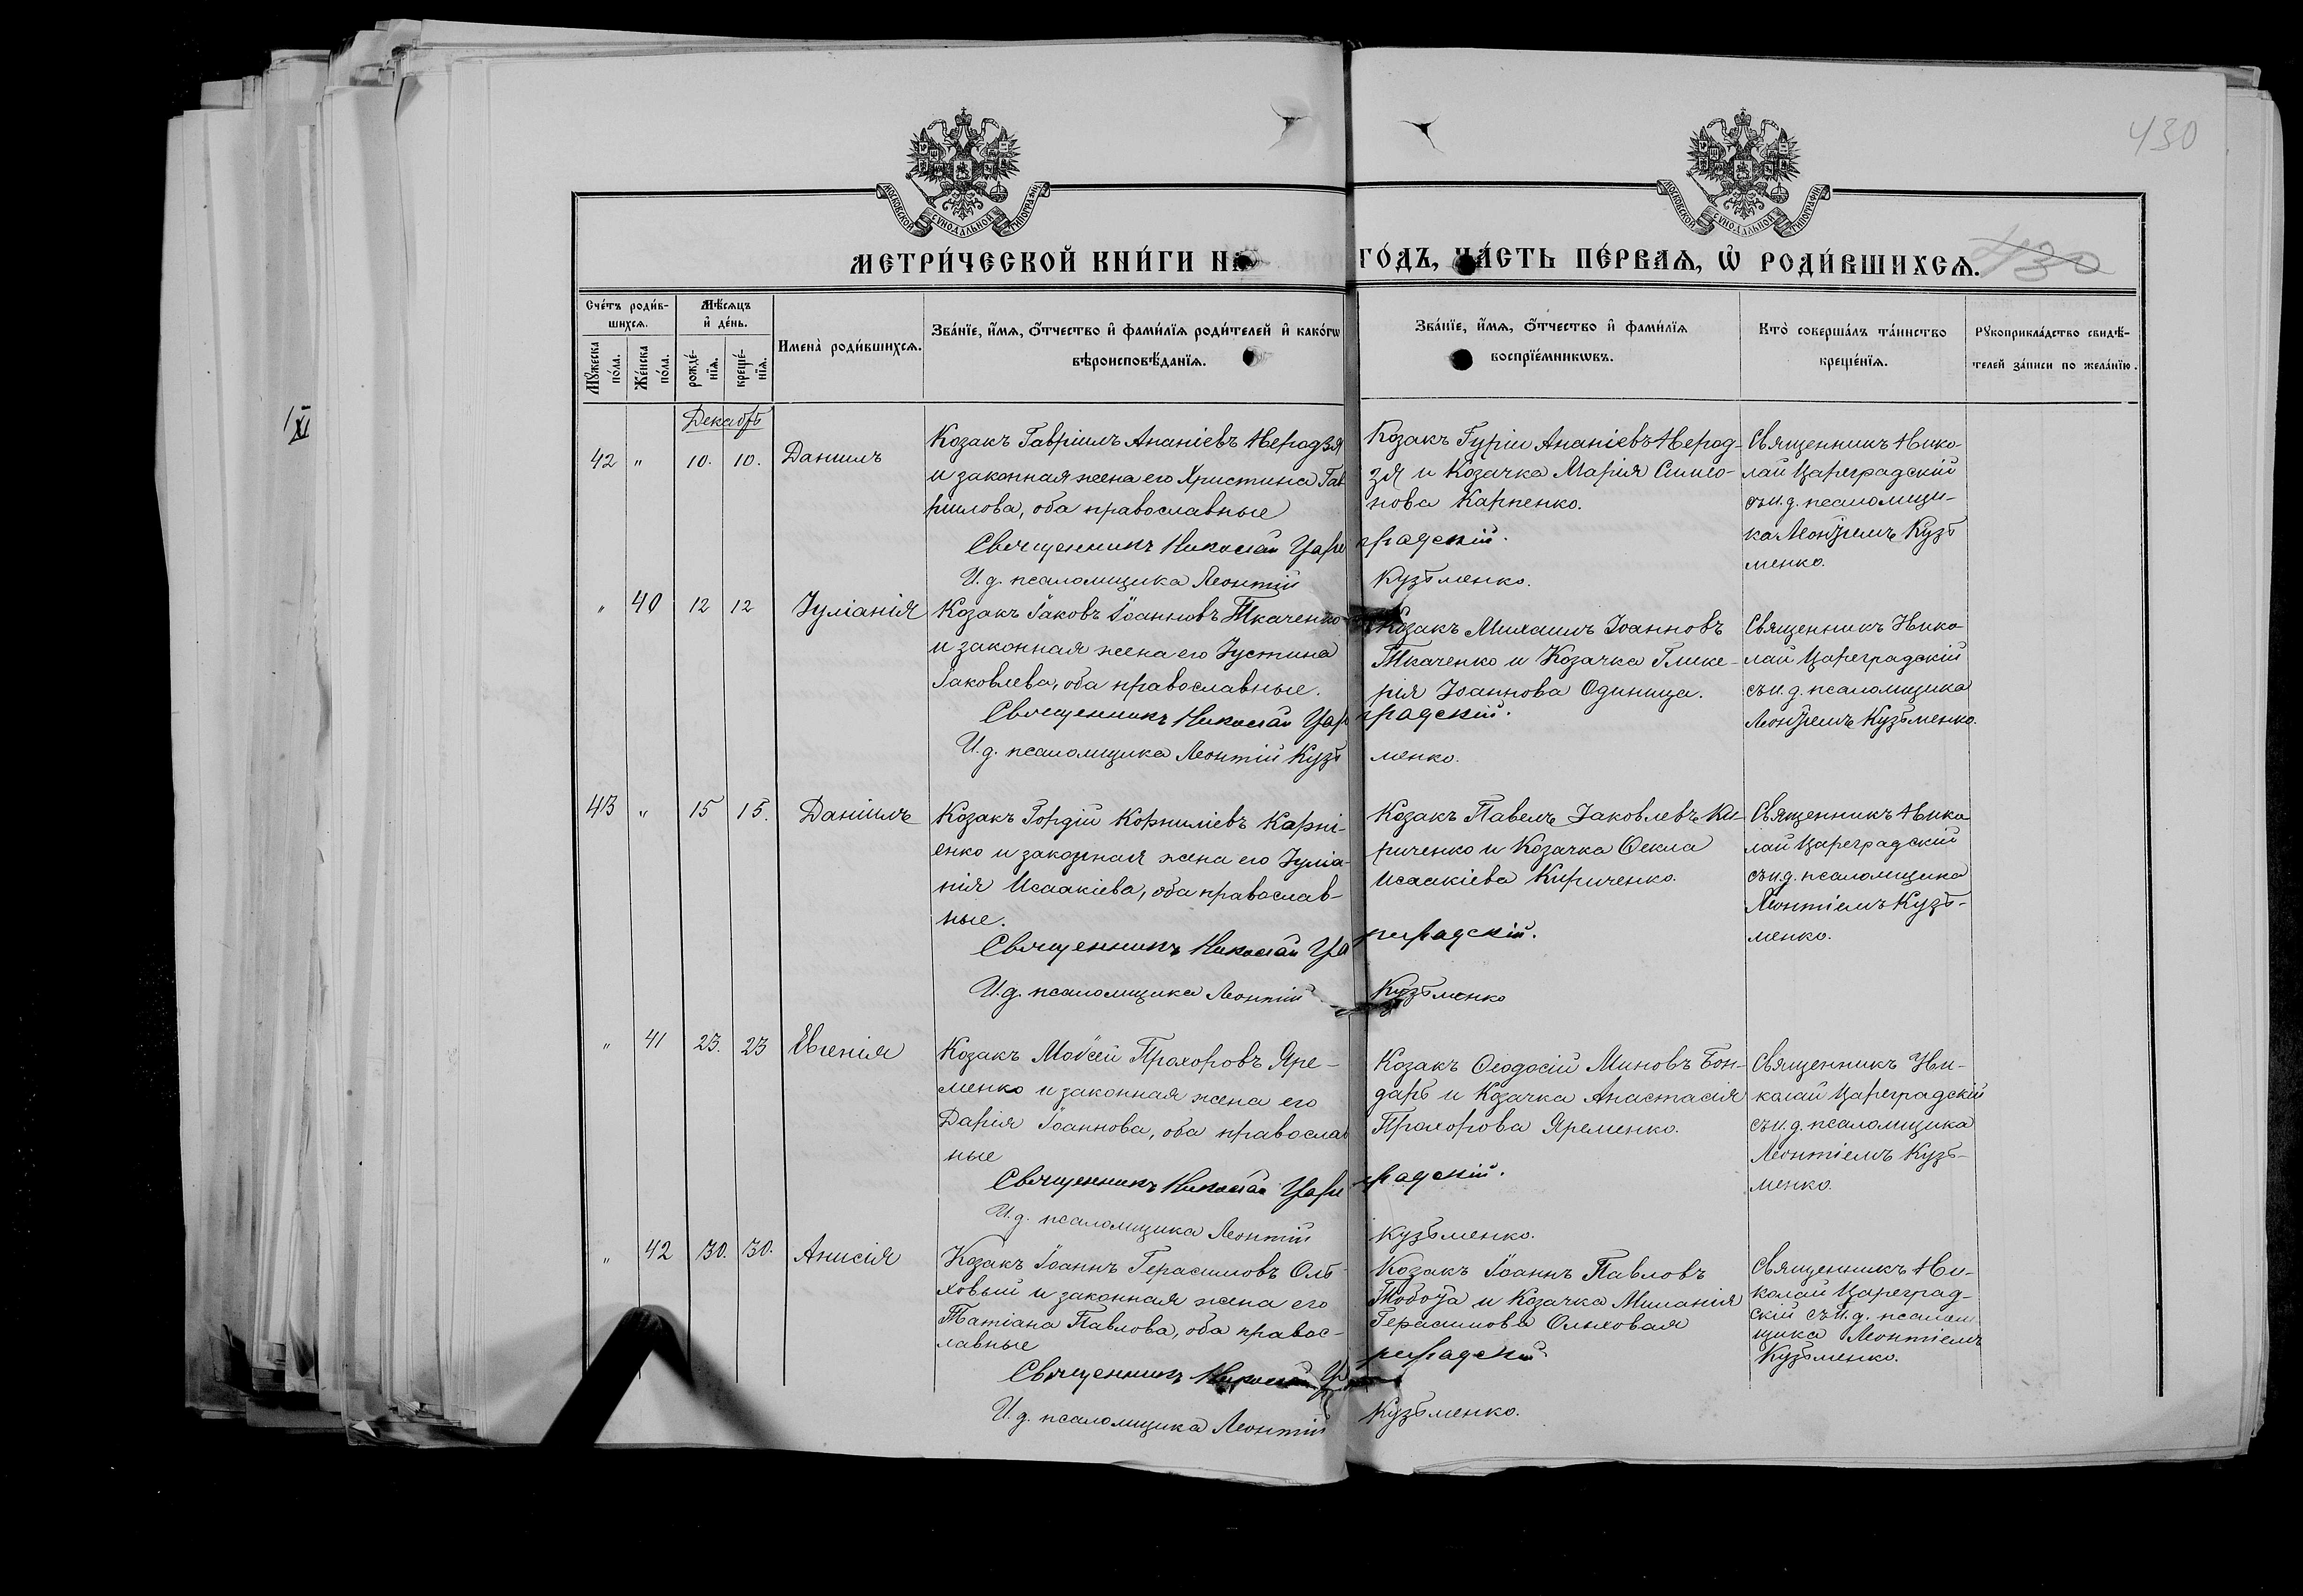 430
МОСКОВСКОЙ СѴНОДАЛЬНОЙ ТИПОГРАФІИ
МОСКОВСКОЙ СѴНОДАЛЬНОЙ ТИПОГРАФІИ
МЕТРИ́ЧЕСКОЙ КНИ́ГИ НА ГО́ДЪ, ЧА́СТЬ ПЕ́РВАѦ, Ѿ РОДИ́ВШИХСѦ.
430
Сче́тъ роди́в-
шихсѧ.
Мꙋ́жеска по́ла.
Же́нска по́ла.
Мѣ́сѧцъ
и҆ де́нь.
рожде́-
нїѧ.
креще́-
нїѧ.
Имена̀ роди́вшихсѧ.
Зва́нїе, и҆́мѧ, ѻ҆́тчество и҆ фами́лїѧ роди́телей и҆ како́гѡ
вѣроисповѣ́данїѧ.
Зва́нїе, и҆́мѧ, ѻ҆́тчество и҆ фами́лїѧ
воспрїе́мникѡвъ.
Кто̀ соверша́лъ та́инство
креще́нїѧ.
Рꙋкоприкла́дство свидѣ́-
телей за́писи по жела́нїю.
Декабрь
42 " 10. 10. Даниилъ
Козакъ Гавріилъ Ананіевъ Неродзя
и законная жена его Христина Гав
риилова, оба православные
Козакъ Гурій Ананіевъ Нерод-
зя и Козачка Марія Симео-
нова Карпенко.
Священникъ Нико-
лай Цареградскій
съ и.д. псаломщи-
ка Леонтіемъ Кузь
менко.
Священникъ Николай Цареградскій.
И.д. псаломщика Леонтій Кузьменко.
" 40 12 12 Іуліанія
Козакъ Іаковъ Іоанновъ Ткаченко
и законная жена его Іустина
Іаковлева, оба православные.
Козакъ Михаилъ Іоанновъ
Ткаченко и Козачка Глике-
рія Іоаннова Одиница.
Священникъ Нико
лай Цареградскій
съ и.д. псаломщика
Леонтіемъ Кузьменко.
Священникъ Николай Цареградскій.
И.д. псаломщика Леонтій Кузьменко.
43 " 15 15. Даніилъ
Козакъ Гордій Корниліевъ Карпі-
енко и законная жена его Іуліа-
нія Исаакіева, оба православ-
ные.
Козакъ Павелъ Іаковлевъ Ки-
риченко и Козачка Ѳекла
Исаакіева Кириченко.
Священникъ Нико
лай Цареградскій
съ и.д. псаломщика
Леонтіемъ Кузь-
менко.
Священникъ Николай Цареградскій.
И.д. псаломщика Леонтій Кузьменко
" 41 23. 23 Евгенія
Козакъ Моѵсей Прохоровъ Яре-
менко и законная жена его
Дарія Іоаннова, оба православ
ные
Козакъ Ѳеодосій Миновъ Бон-
дарь и Козачка Анастасія
Прохорова Яременко.
Священникъ Ни-
колай Цареградскій
съ и.д. псаломщика
Леонтіемъ Кузь-
менко.
Священникъ Николай Цареградскій.
И.д. псаломщика Леонтій Кузьменко.
" 42 30. 30. Анисія
Козакъ Іоаннъ Герасимовъ Оль-
ховый и законная жена его
Татіана Павлова, оба правос-
лавные
Козакъ Іоаннъ Павловъ
и Козачка Миланія
Герасимова Ольховая
Священникъ Ни-
колай Цареград-
скій съ и.д. псалом
щика Леонтіемъ
Кузьменко.
Священникъ Николай Цареградскій
И.д. псаломщика Леонтій Кузьменко.